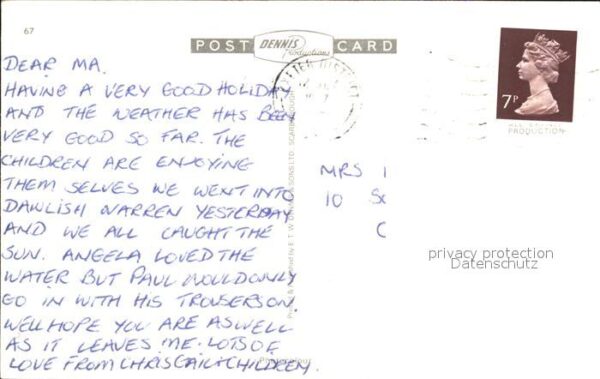 67
POST DENNIS Productions CARD
DEAR MA.
HAVING A VERY GOOD HOLIDAY
AND THE WEATHER HAS BEEN
VERY GOOD SO FAR. THE
CHILDREN ARE ENJOYING
THEM SELVES WE WENT INTO
DAWLISH WARREN YESTERDAY
AND WE ALL CAUGHT THE
SUN. ANGELA LOVED THE
WATER BUT PAUL WOULD ONLY
GO IN WITH HIS TROUSERS ON.
WELL HOPE YOU ARE AS WELL
AS IT LEAVES ME. LOTS OF
LOVE FROM CHRIS GAIL + CHILDREN.
EXETER DISTRICT
7P
PRODUCTION
MRS
10 S
privacy protection
Datenschutz